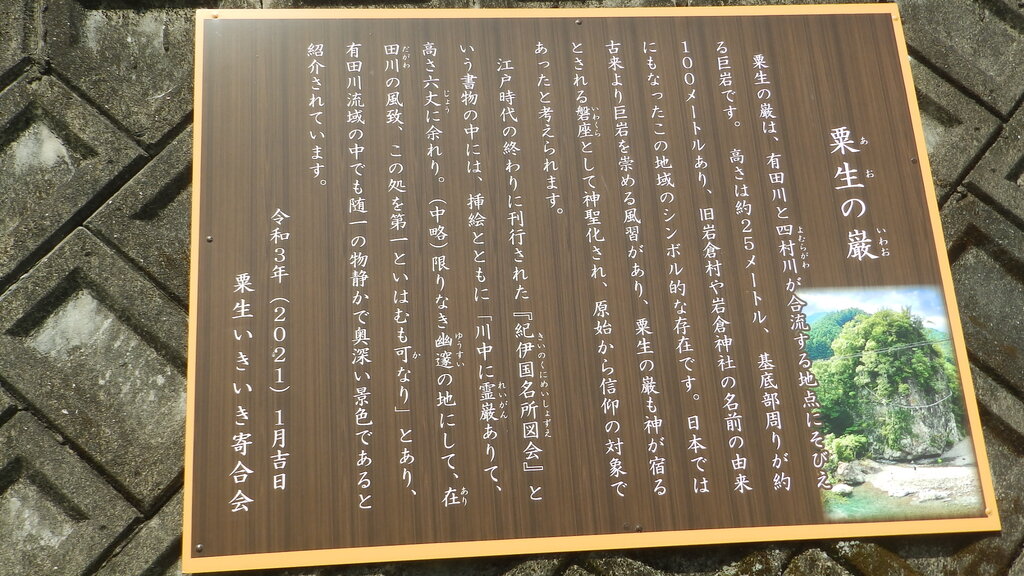 粟生の巌
あ お いわお
粟生の巌は、有田川と四村川が合流する地点にそびえ
よむらがわ
る巨岩です。 高さは約25メートル、 基底部周りが約
100メートルあり、 旧岩倉村や岩倉神社の名前の由来
にもなったこの地域のシンボル的な存在です。日本では
古来より巨岩を崇める風習があり、粟生の巌も神が宿る
とされる磐座として神聖化され、原始から信仰の対象で
いわくら
あったと考えられます。
江戸時代の終わりに刊行された『紀伊国名所図会』と
きいのくにめいしょずえ
いう書物の中には、挿絵とともに「川中に霊巌ありて、
れいがん
高さ六丈に余れり。(中略)限りなき幽邃の地にして、在
じょう ゆうすい あり
田川の風致、この処を第一といはむも可なり」とあり、
だがわ か
有田川流域の中でも随一の物静かで奥深い景色であると
紹介されています。
令和3年(2021)1月吉日
粟生いきいき寄合会